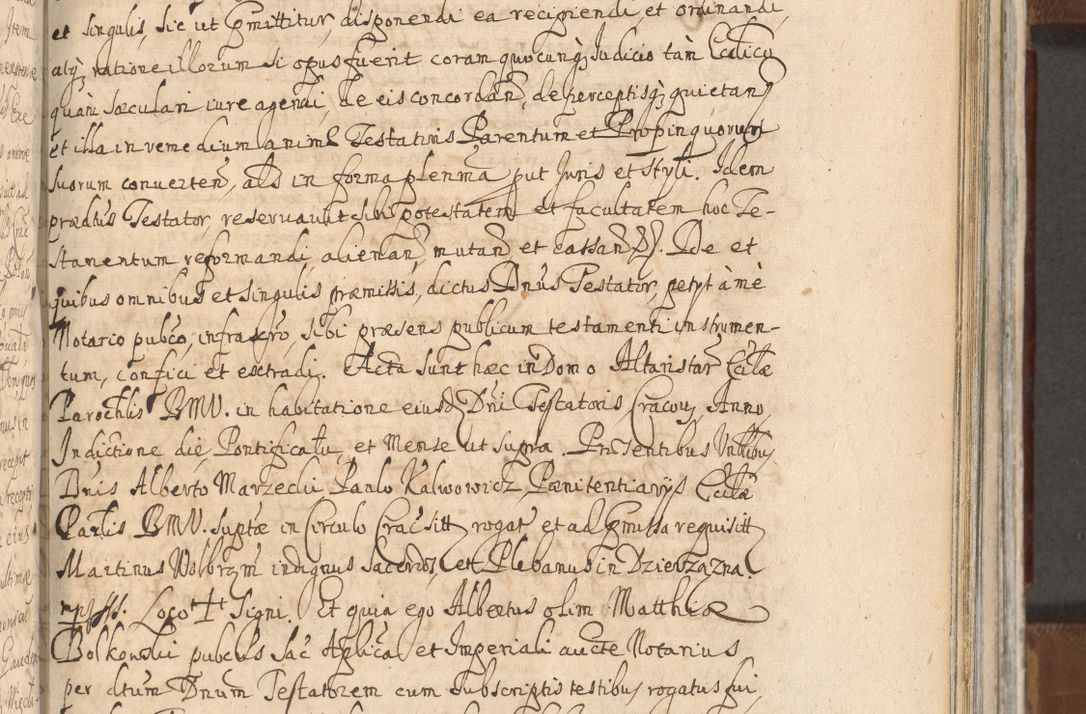 et singulis, sic ut pmittitur, disponendi ea recipiendi, et ordinandi,
atq; ratione illorum si opus fuerit coram quocunq; Judicio tàm Ecclico
quàm sæculari iure agendi, de eis concordan, de perceptisq; quietan
et illa in remedium animæ Testatoris Parentum et Propinquorum
suorum conuerten, als in forma plenma put Juris et styli. Idem
prædtus Testator, reseruauit sibi potestatem et facultatem hoc Te-
stamentum reformandi, alienan, mutan et cassan. De et
quibus omnibus et singulis præmissis, dictus Dnus Testator, petyt à mè
Notario pubco, infrascro, sibi præsens publicum testamenti instrumen-
tum, confici et extradi. Acta sunt hæc in Domo Altaristar Eccliæ
Parochlis BMV. in habitatione eiusd Dni Testatoris Cracou, Anno,
Indictione die, Pontificatu, et Mense ut supra. Præsentibus
Dnis Alberto Marzecki Paulo Kalwowicz, Pænitentiarys Eccliæ
Parlis BMV. suptæ in Circulo Crac sitt rogat et ad pmissa requisitt
Martinus Wolbrzm indignus sacerdos et Plebanus in Dzierzazna
mpssst. Loco + Signi. Et quia ego Albertus olim Matthiæ
Bolkowski pubcus Sac Aplica et Imperiali aucte Notarius
per dtum Dnum Testatorem cum subscriptis testibus rogatus fui,